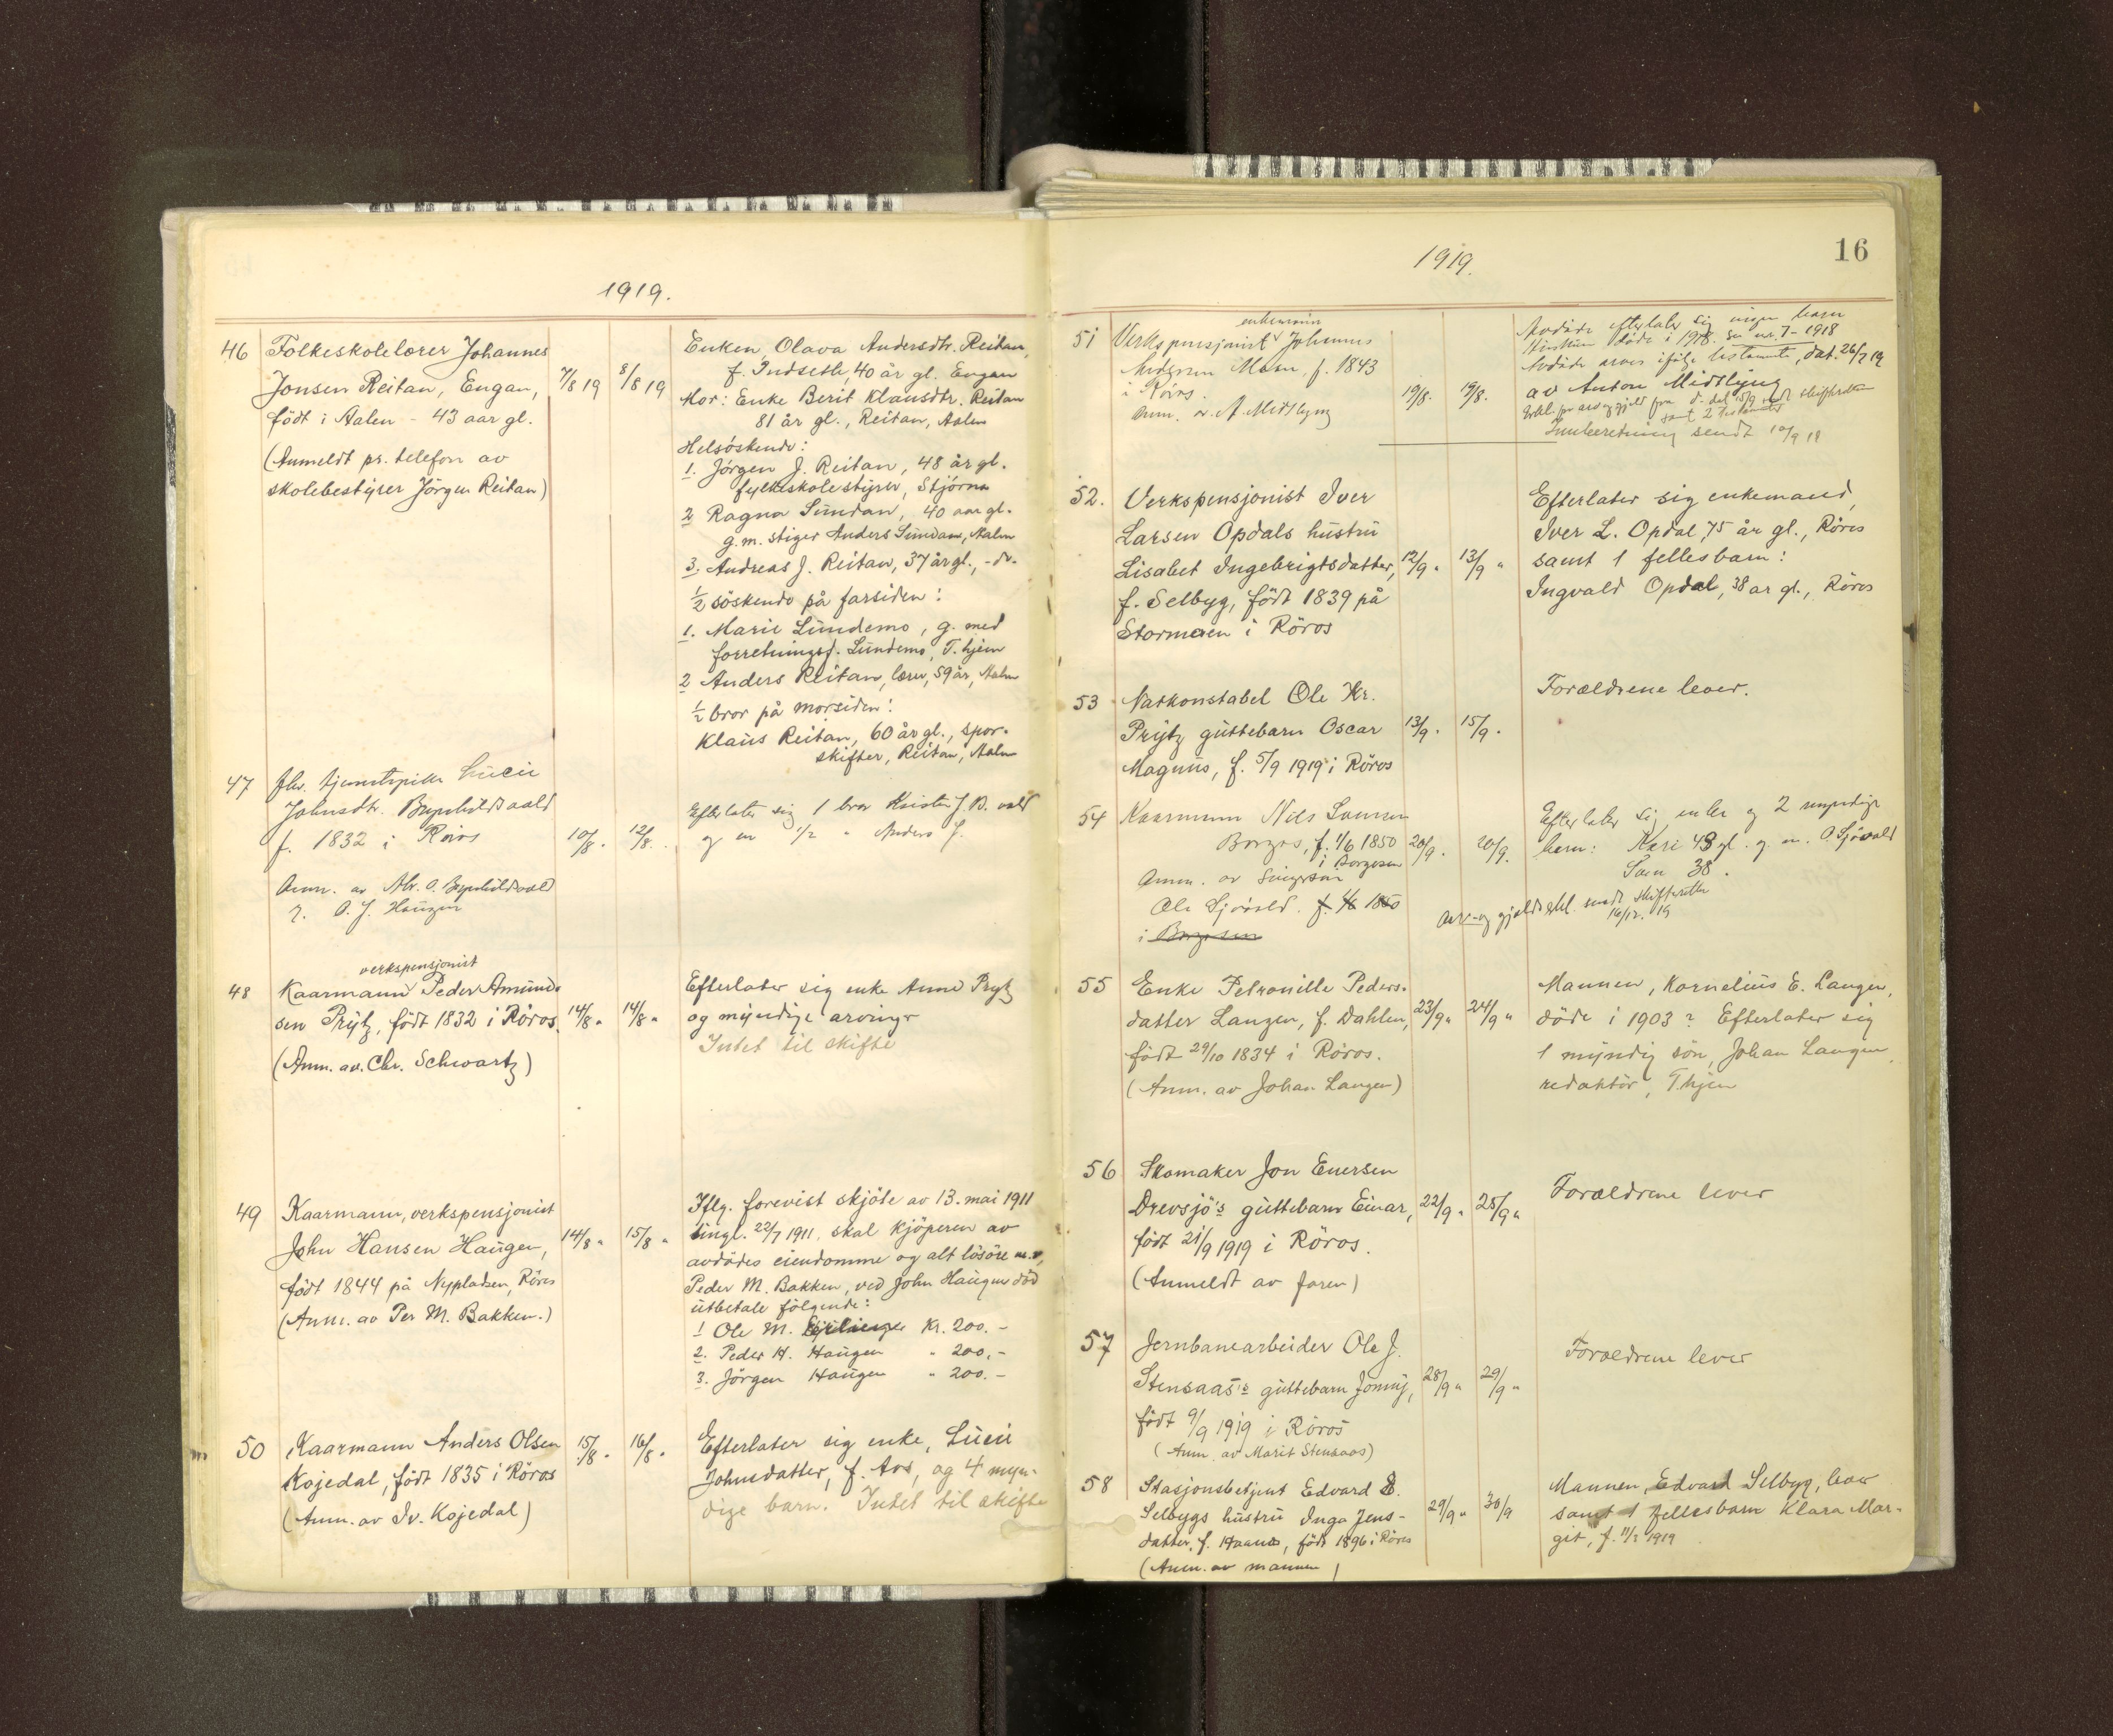 1919.
46 Folkeskolelærer Johannes
Jonsen Reitan, Engan, 7/8 19 8/8 19
født i Aalen - 43 aar gl.
(Anmeldt pr. telefon av
skolebestyrer Jörgen Reitan)
Enken, Olava Andersdtr. Reitan,
f. Indseth, 40 år gl. Engan
Mor: Enke Berit Klausdtr. Reitan
81 år gl., Reitan, Aalen
Helsöskende:
1. Jörgen J. Reitan, 48 år gl.
fylkesskolestyrer, Stjörna
2 Ragna Sundan, 40 aar gl.
g.m. stiger Anders Sundan, Aalen
3. Andreas J. Reitan, 37 år gl., -do-
1/2 söskende på farsiden:
1. Marie Lundemo, g. med
forretningsf. Lundemo, T.hjem
2 Anders Reitan, lærer, 59 år, Aalen
1/2 bror på morsiden:
Klaus Reitan, 60 år gl., spor-
skifter, Reitan, Aalen
47 fhv. tjenestepike Lucie
Johnsdtr. Brynhildsvold
f. 1832 i Röros 10/8. 12/8.
Anm. av O. Brynhildsvold
O. J. Haugen
Efterlater sig 1 bror J. B. vold
og en 1/2 " Anders J.
48 verkspensjonist
Kaarmann Peder Amund-
sen Prytz, født 1832 i Röros. 14/8 " 14/8 "
(Anm. av. Chr. Schwartz)
Efterlater sig enke Anne Prytz
og myndige arvinger
Intet til skifte
49 Kaarmann, verkspensjonist
John Hansen Haugen, 14/8 " 15/8 "
født 1844 på Nypladsen, Röros
(Anm. av Per M. Bakken.)
Iflg. forevist skjöte av 13. mai 1911
tingl. 22/7 1911, skal kjöperen av
avdödes eiendomme og alt lösöre m.v,
Peder M. Bakken, ved John Haugens död
utbetale fölgende:
1 Ole M. Kr. 200.-
2. Peder H. Haugen " 200,-
3. Jörgen Haugen " 200.-
50 Kaarmann Anders Olsen 15/8 " 16/8 "
Kojedal, født 1835 i Röros
(Anm. av Iv. Kojedal)
Efterlater sig enke, Lucie
Johnsdatter, f. Aos, og 4 myn-
dige barn. Intet til skifte
1919.
16
51 enkemann
Verkspensjonist Johannes
Andersen Moen, f. 1843
i Röros. 19/8. 19/8.
Anm. av A. Midtlyng
Avdöde efterlater sig ingen barn
Hustruen döde i 1918. Se nr. 7 - 1918
Avdöde arves ifölge testamente, dat. 26/7 19
av Anton Midtlyng
Erkl. pr arv og gjeld fra d. dat 15/9 sendt skifteretten
samt 2 Testamenter
Innberetning sendt 10/9 19
52. Verkspensjonist Iver
Larsen Opdals hustru
Lisabet Ingebrigtsdatter, 12/9 " 13/9 "
f. Selbyg, född 1839 på
Stormoen i Röros
Efterlater sig enkemand,
Iver L. Opdal, 75 år gl., Röros
samt 1 fellesbarn:
Ingvald Opdal, 38 ar gl., Röros
53 Natkonstabel Ole Kr.
Prytz guttebarn Oscar 13/9 . 15/9 .
Magnus, f. 5/9 1919 i Röros
Forældrene lever.
54 Kaarmann Nils Larsen
Borgos, f. 1/6 1850 20/9. 20/9.
i Borgosen
Anm. av svigersön
Ole Sjövold. f. 1/6 1850
i Borgosen
Efterlater sig enke og 2 myndige
barn: Kari 43 gl. g. m. O. Sjövold
Lars 38.
Arv- og gjeldserkl. sendt skifteretten
16/12. 19
55 Enke Petronille Peders-
datter Langen, f. Dahlen, 23/9 " 24/9 "
født 29/10 1834 i Röros.
(Anm. av Johan Langen)
Mannen, Kornelius E. Langen,
döde i 1903? Efterlater sig
1 myndig sön, Johan Langen
redaktör, T.hjem
56 Skomaker Jon Enersen
Drevsjö's guttebarn Einar, 22/9 " 25/9 "
født 21/9 1919 i Röros.
(Anmeldt av faren)
Forældrene lever
57 Jernbanearbeider Ole J.
Stensaas's guttebarn Jonny, 28/9 " 29/9 "
født 9/9 1919 i Röros
(Anm. av Marit Stensaas)
Forældrene lever
58 Stasjonsbetjent Edvard
Selbygs hustru Inga Jens- 29/9 " 30/9
datter, f. Haanes, født 1896 i Röros
(Anm. av mannen)
Mannen, Edvard Selbyg, lever
samt 1 fellesbarn Klara Mar-
git, f. 11/2 1919